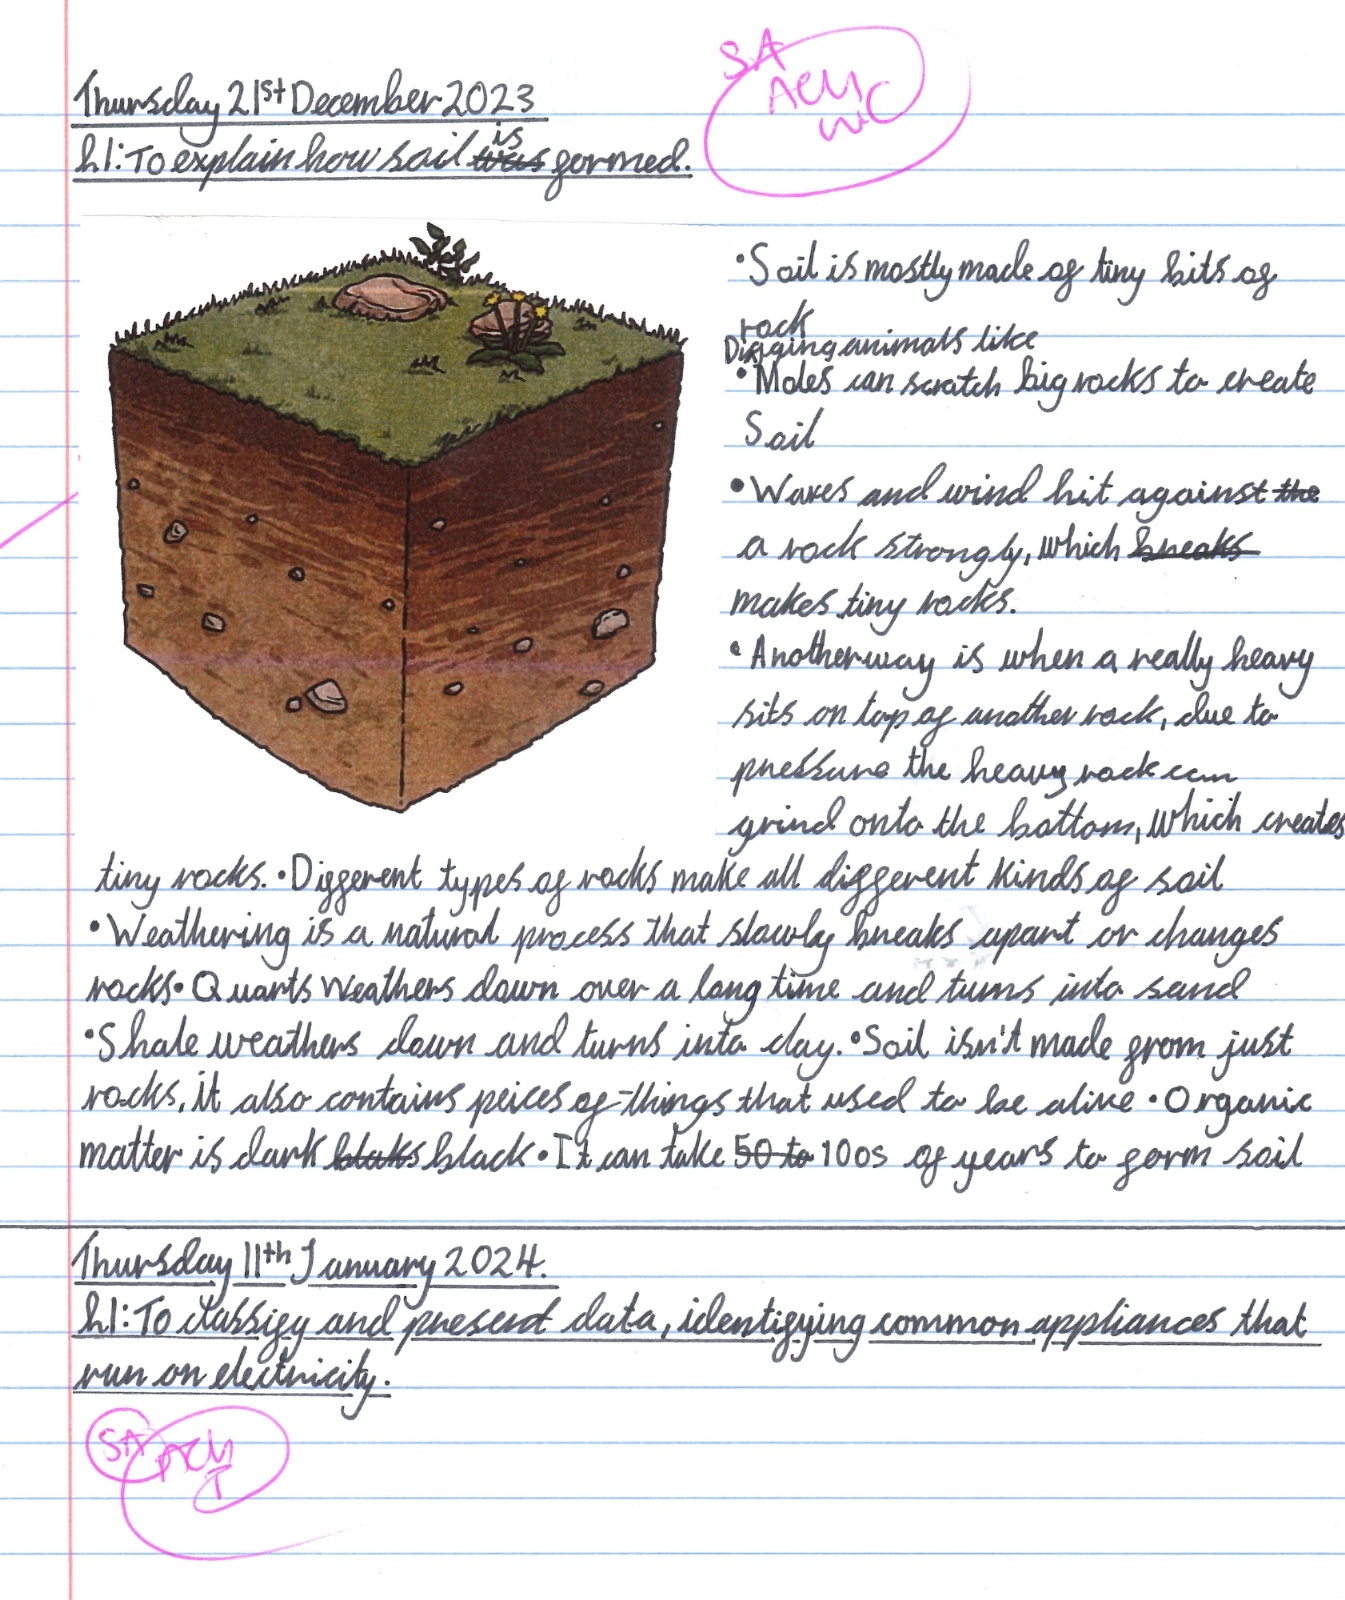 SA
ACH
WC
Thursday 21st December 2023
is
LI: To explain how soil was formed.
• Soil is mostly made of tiny bits of
rock
Digging animals like
• Moles can scratch big rocks to create
Soil
• Waves and wind hit against the
a rock strongly, which breaks
makes tiny rocks.
• Another way is when a really heavy
sits on top of another rock, due to
pressure the heavy rock can
grind onto the bottom, which creates
tiny rocks. • Different types of rocks make all different kinds of soil
• Weathering is a natural process that slowly breaks apart or changes
rocks • Quarts weathers down over a long time and turns into sand
• Shale weathers down and turns into clay. • Soil isn't made from just
rocks, it also contains peices of things that used to be alive • Organic
matter is dark blaks black • It can take 50 to 100s of years to form soil
Thursday 11th January 2024.
LI: To classify and present data, identifying common appliances that
run on electricity.
SA ACH
T